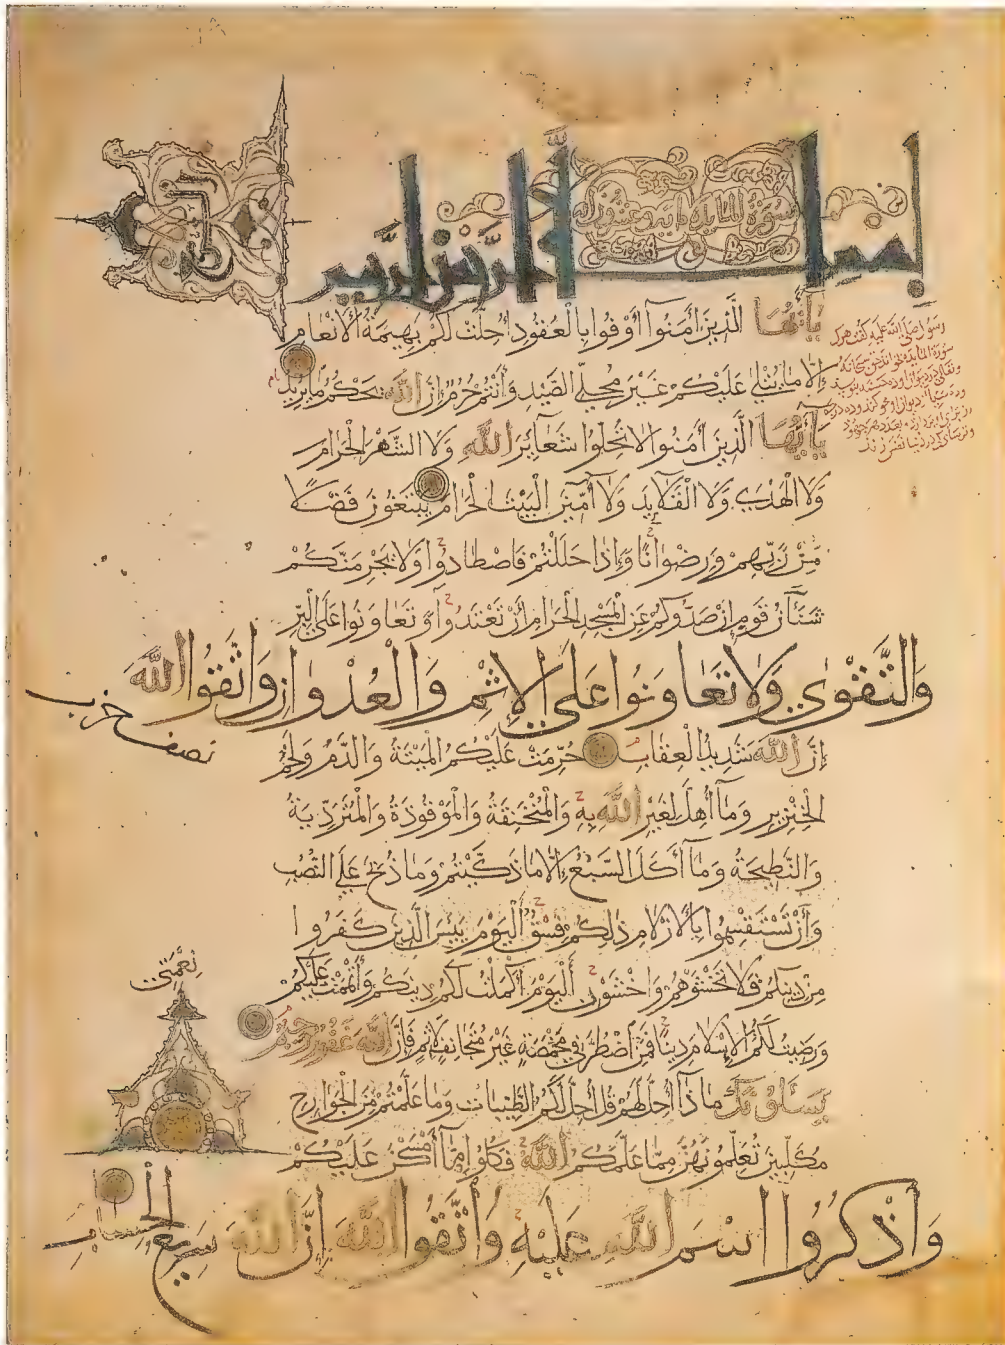 بسم الله الرحمن الرحيم
سورة المائدة مائة وعشرون
يَا أَيُّهَا الَّذِينَ آمَنُوا أَوْفُوا بِالْعُقُودِ أُحِلَّتْ لَكُمْ بَهِيمَةُ الْأَنْعَامِ
إِلَّا مَا يُتْلَىٰ عَلَيْكُمْ غَيْرَ مُحِلِّي الصَّيْدِ وَأَنْتُمْ حُرُمٌ إِنَّ اللَّهَ يَحْكُمُ مَا يُرِيدُ
يَا أَيُّهَا الَّذِينَ آمَنُوا لَا تُحِلُّوا شَعَائِرَ اللَّهِ وَلَا الشَّهْرَ الْحَرَامَ
وَلَا الْهَدْيَ وَلَا الْقَلَائِدَ وَلَا آمِّينَ الْبَيْتَ الْحَرَامَ يَبْتَغُونَ فَضْلًا
مِّن رَّبِّهِمْ وَرِضْوَانًا وَإِذَا حَلَلْتُمْ فَاصْطَادُوا وَلَا يَجْرِمَنَّكُمْ
شَنَآنُ قَوْمٍ أَنْ صَدُّوكُمْ عَنِ الْمَسْجِدِ الْحَرَامِ أَنْ تَعْتَدُوا وَتَعَاوَنُوا عَلَى الْبِرِّ
وَالتَّقْوَىٰ وَلَا تَعَاوَنُوا عَلَى الْإِثْمِ وَالْعُدْوَانِ وَاتَّقُوا اللَّهَ
نصف حزب
إِنَّ اللَّهَ شَدِيدُ الْعِقَابِ حُرِّمَتْ عَلَيْكُمُ الْمَيْتَةُ وَالدَّمُ وَلَحْمُ
الْخِنْزِيرِ وَمَا أُهِلَّ لِغَيْرِ اللَّهِ بِهِ وَالْمُنْخَنِقَةُ وَالْمَوْقُوذَةُ وَالْمُتَرَدِّيَةُ
وَالنَّطِيحَةُ وَمَا أَكَلَ السَّبُعُ إِلَّا مَا ذَكَّيْتُمْ وَمَا ذُبِحَ عَلَى النُّصُبِ
وَأَنْ تَسْتَقْسِمُوا بِالْأَزْلَامِ ذَٰلِكُمْ فِسْقٌ الْيَوْمَ يَئِسَ الَّذِينَ كَفَرُوا
مِنْ دِينِكُمْ فَلَا تَخْشَوْهُمْ وَاخْشَوْنِ الْيَوْمَ أَكْمَلْتُ لَكُمْ دِينَكُمْ وَأَتْمَمْتُ عَلَيْكُمْ
نِعْمَتِي
وَرَضِيتُ لَكُمُ الْإِسْلَامَ دِينًا فَمَنِ اضْطُرَّ فِي مَخْمَصَةٍ غَيْرَ مُتَجَانِفٍ لِإِثْمٍ فَإِنَّ اللَّهَ غَفُورٌ رَحِيمٌ
يَسْأَلُونَكَ مَاذَا أُحِلَّ لَهُمْ قُلْ أُحِلَّ لَكُمُ الطَّيِّبَاتُ وَمَا عَلَّمْتُمْ مِنَ الْجَوَارِحِ
مُكَلِّبِينَ تُعَلِّمُونَهُنَّ مِمَّا عَلَّمَكُمُ اللَّهُ فَكُلُوا مِمَّا أَمْسَكْنَ عَلَيْكُمْ
وَاذْكُرُوا اسْمَ اللَّهِ عَلَيْهِ وَاتَّقُوا اللَّهَ إِنَّ اللَّهَ سَرِيعُ الْحِسَابِ